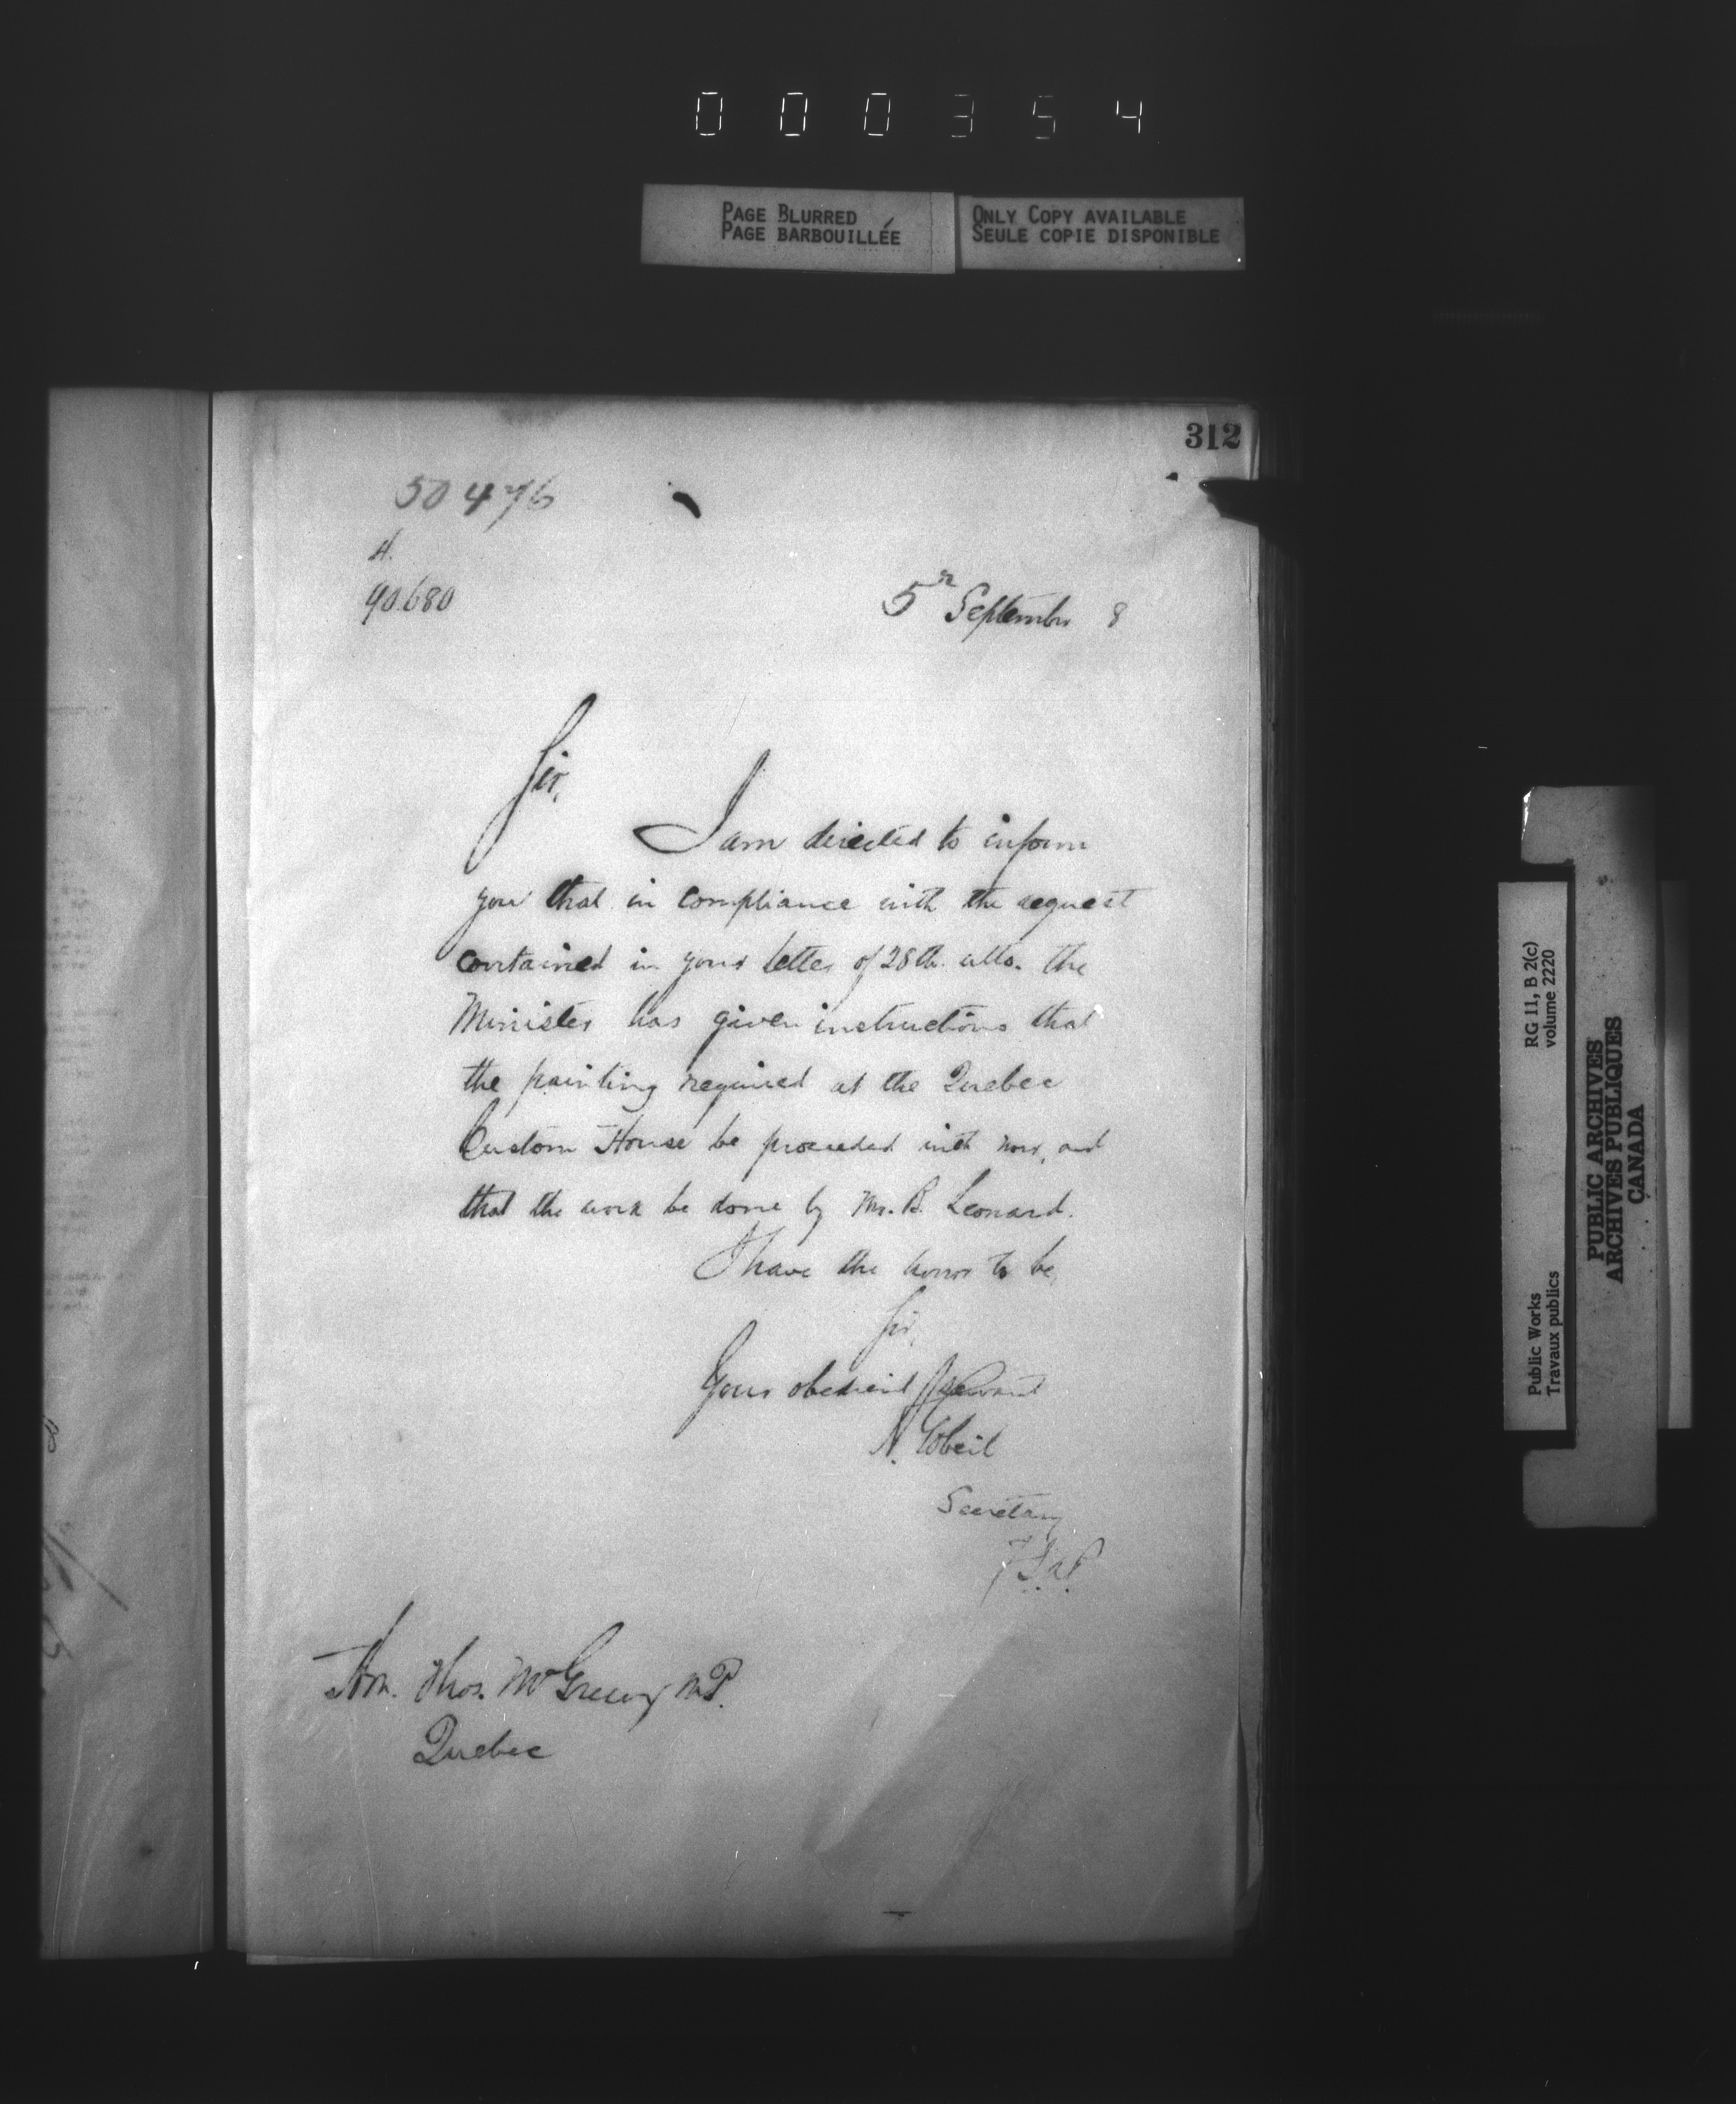 000354
PAGE BLURRED
PAGE BARBOUILLÉE
ONLY COPY AVAILABLE
SEULE COPIE DISPONIBLE
312
50476
H.
90.680
5th September 8
Sir,
I am directed to inform
you that in compliance with the request
contained in your letter of 28th ulto. the
Minister has given instructions that
the painting required at the Quebec
Custom House be proceeded with now, and
that the work be done by Mr. B. Leonard.
I have the honor to be,
Sir,
Your obedient Servant
A. Gobeil
Secretary
Hon. Thos. McGreevy M.P.
Quebec
Public Works
Travaux publics
RG 11, B 2(c)
volume 2220
PUBLIC ARCHIVES
ARCHIVES PUBLIQUES
CANADA